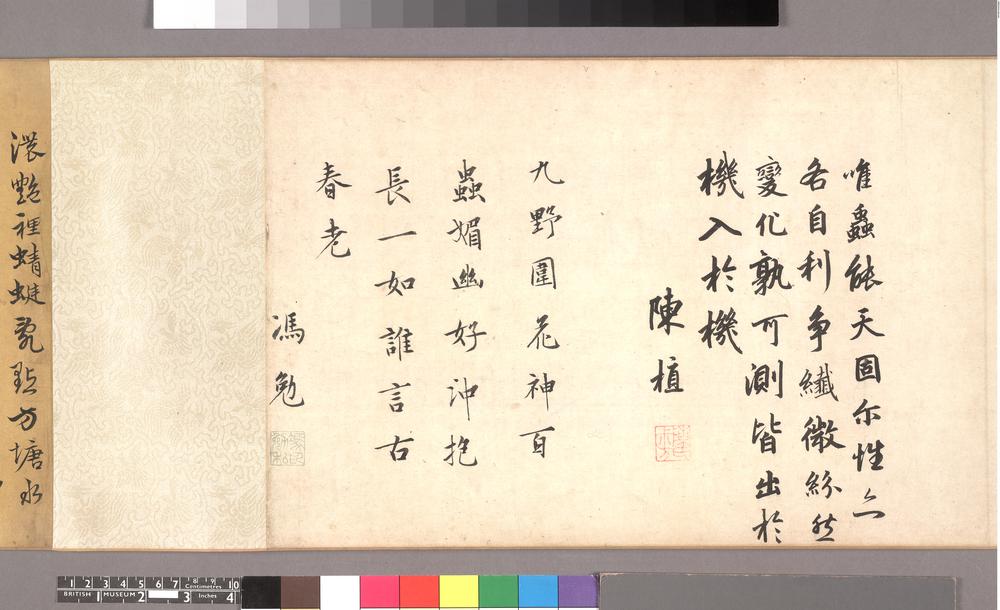 唯蟲能天固尓性亦
各自利爭纖微紛然
變化孰可測皆出於
機入於機
陳植
九野圍花神百
蟲媚幽好沖抱
長一如誰言古
春老
馮勉
濃艷裡蜻蜓亂點方塘水
1 2 3 4 5 6 7 8 9 10
Centimetres
BRITISH 1 MUSEUM 2 3 Inches 4